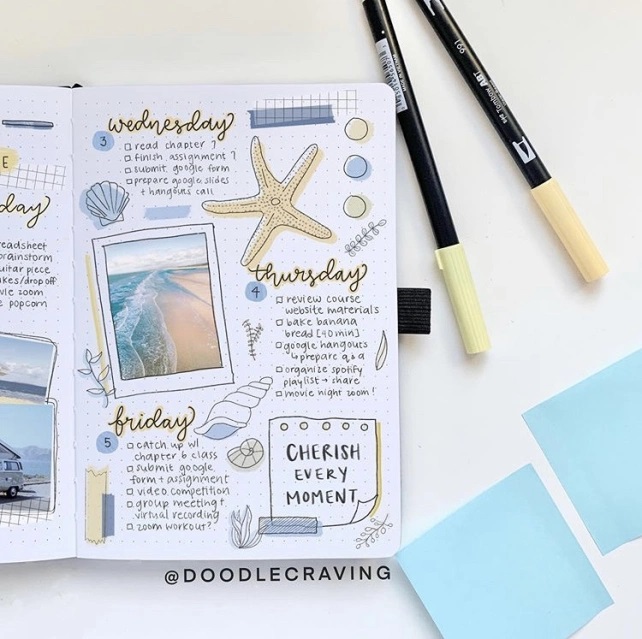 E
day
readsheet
brainstorm
uitar piece
akes/drop off
vie zoom
e popcorn
wednesday
3
read chapter 7
finish assignment 7
submit google form
prepare google slides
+ hangouts call
thursday
4
review course
website materials
bake banana
bread [40 min]
google hangouts
↳ prepare q & a
organize spotify
playlist → share
movie night zoom!
friday
5
catch up w/
chapter 6 class
submit google
form + assignment
video competition
group meeting +
virtual recording
zoom workout?
CHERISH
EVERY
MOMENT
@DOODLECRAVING
991
Tombow ART